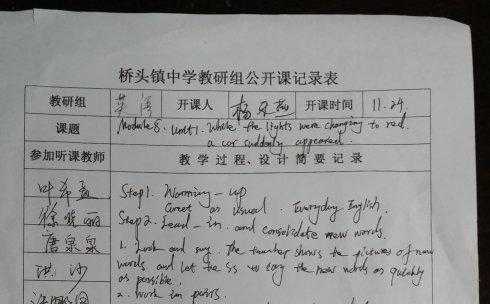 桥头镇中学教研组公开课记录表
教研组 英语 开课人 杨 燕 开课时间 11.24.
课题 Module 8. Unit 1. While the lights were changing to red,
a car suddenly appeared.
参加听课教师 教学过程、设计简要记录
叶 Step 1. Warming-up
Greet as usual. Everyday English.
徐 丽 Step 2. Lead-in and consolidate new words.
唐泉泉 1. Look and say. The teacher shows the pictures of new
洪沙 words and let the Ss to say the new words as quickly
as possible.
2. Work in pairs.